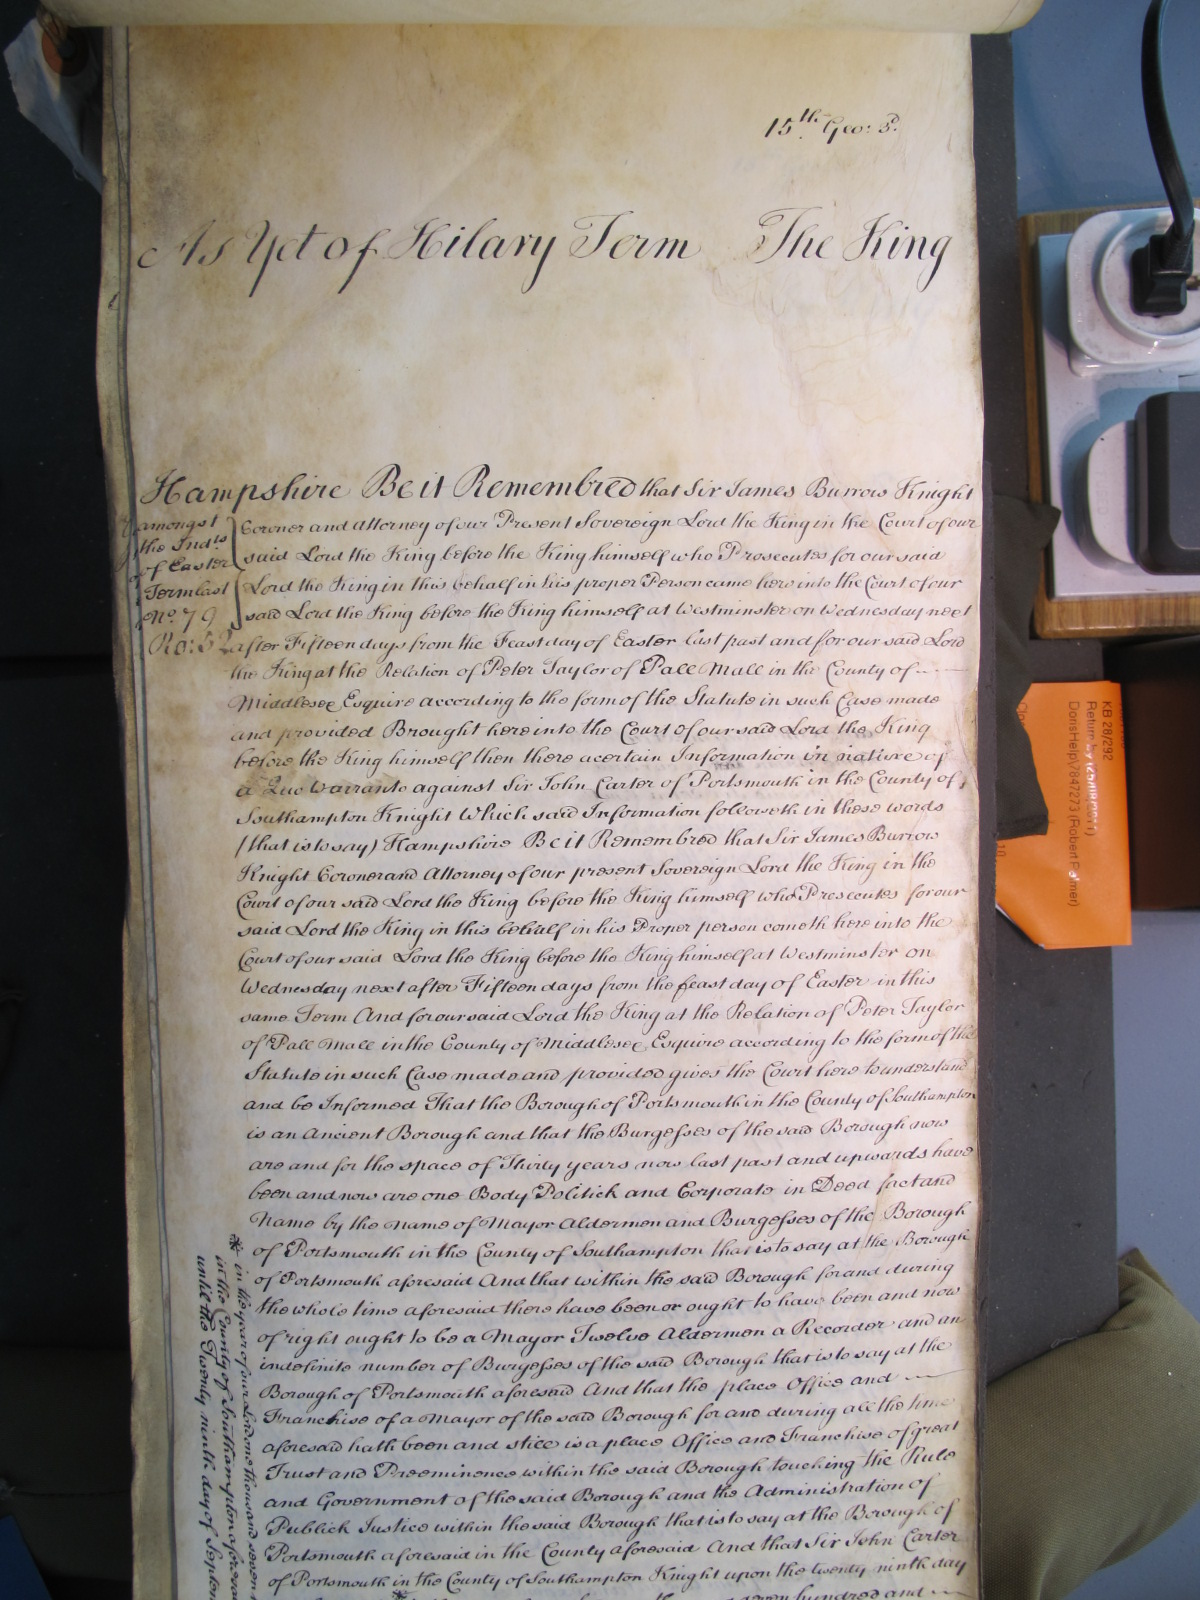 15th Geo: 3.
As Yet of Hilary Term The King
Hampshire Be it Remembred that Sir James Burrow Knight
amongst
the Indts
of Easter
Term last
No. 79
Ro: 5
Coroner and Attorney of our Present Sovereign Lord the King in the Court of our
said Lord the King before the King himself who Prosecutes for our said
Lord the King in this behalf in his proper Person came here into the Court of our
said Lord the King before the King himself at Westminster on Wednesday next
after Fifteen days from the Feast day of Easter last past and for our said Lord
the King at the Relation of Peter Taylor of Pall Mall in the County of
Middlesex Esquire according to the form of the Statute in such Case made
and provided Brought here into the Court of our said Lord the King
before the King himself then there a certain Information in nature of
a Quo Warranto against Sir John Carter of Portsmouth in the County of
Southampton Knight Which said Information followeth in these words
(that is to say) Hampshire Be it Remembred that Sir James Burrow
Knight Coroner and Attorney of our present Sovereign Lord the King in the
Court of our said Lord the King before the King himself who Prosecutes for our
said Lord the King in this behalf in his Proper person cometh here into the
Court of our said Lord the King before the King himself at Westminster on
Wednesday next after Fifteen days from the feast day of Easter in this
same Term And for our said Lord the King at the Relation of Peter Taylor
of Pall Mall in the County of Middlesex Esquire according to the form of the
Statute in such Case made and provided gives the Court here to understand
and be Informed That the Borough of Portsmouth in the County of Southampton
is an Ancient Borough and that the Burgesses of the said Borough now
are and for the space of Thirty years now last past and upwards have
been and now are one Body Politick and Corporate in Deed fact and
Name by the name of Mayor Aldermen and Burgesses of the Borough
of Portsmouth in the County of Southampton that is to say at the Borough
of Portsmouth aforesaid And that within the said Borough for and during
the whole time aforesaid there have been or ought to have been and now
of right ought to be a Mayor Twelve Aldermen a Recorder and an
indefinite number of Burgesses of the said Borough that is to say at the
Borough of Portsmouth aforesaid And that the place Office and
Franchise of a Mayor of the said Borough for and during all the time
aforesaid hath been and still is a place Office and Franchise of great
Trust and Preeminence within the said Borough touching the Rule
and Government of the said Borough and the Administration of
Publick Justice within the said Borough that is to say at the Borough of
Portsmouth aforesaid in the County aforesaid And that Sir John Carter
of Portsmouth in the County of Southampton Knight upon the twenty ninth day
seven hundred and
* in the year of our Lord one thousand seven
in the County of Southampton aforesaid
until the Twenty ninth day of
KB 28/292
Return by
DorisHelp/V847273 (Robert Palmer)